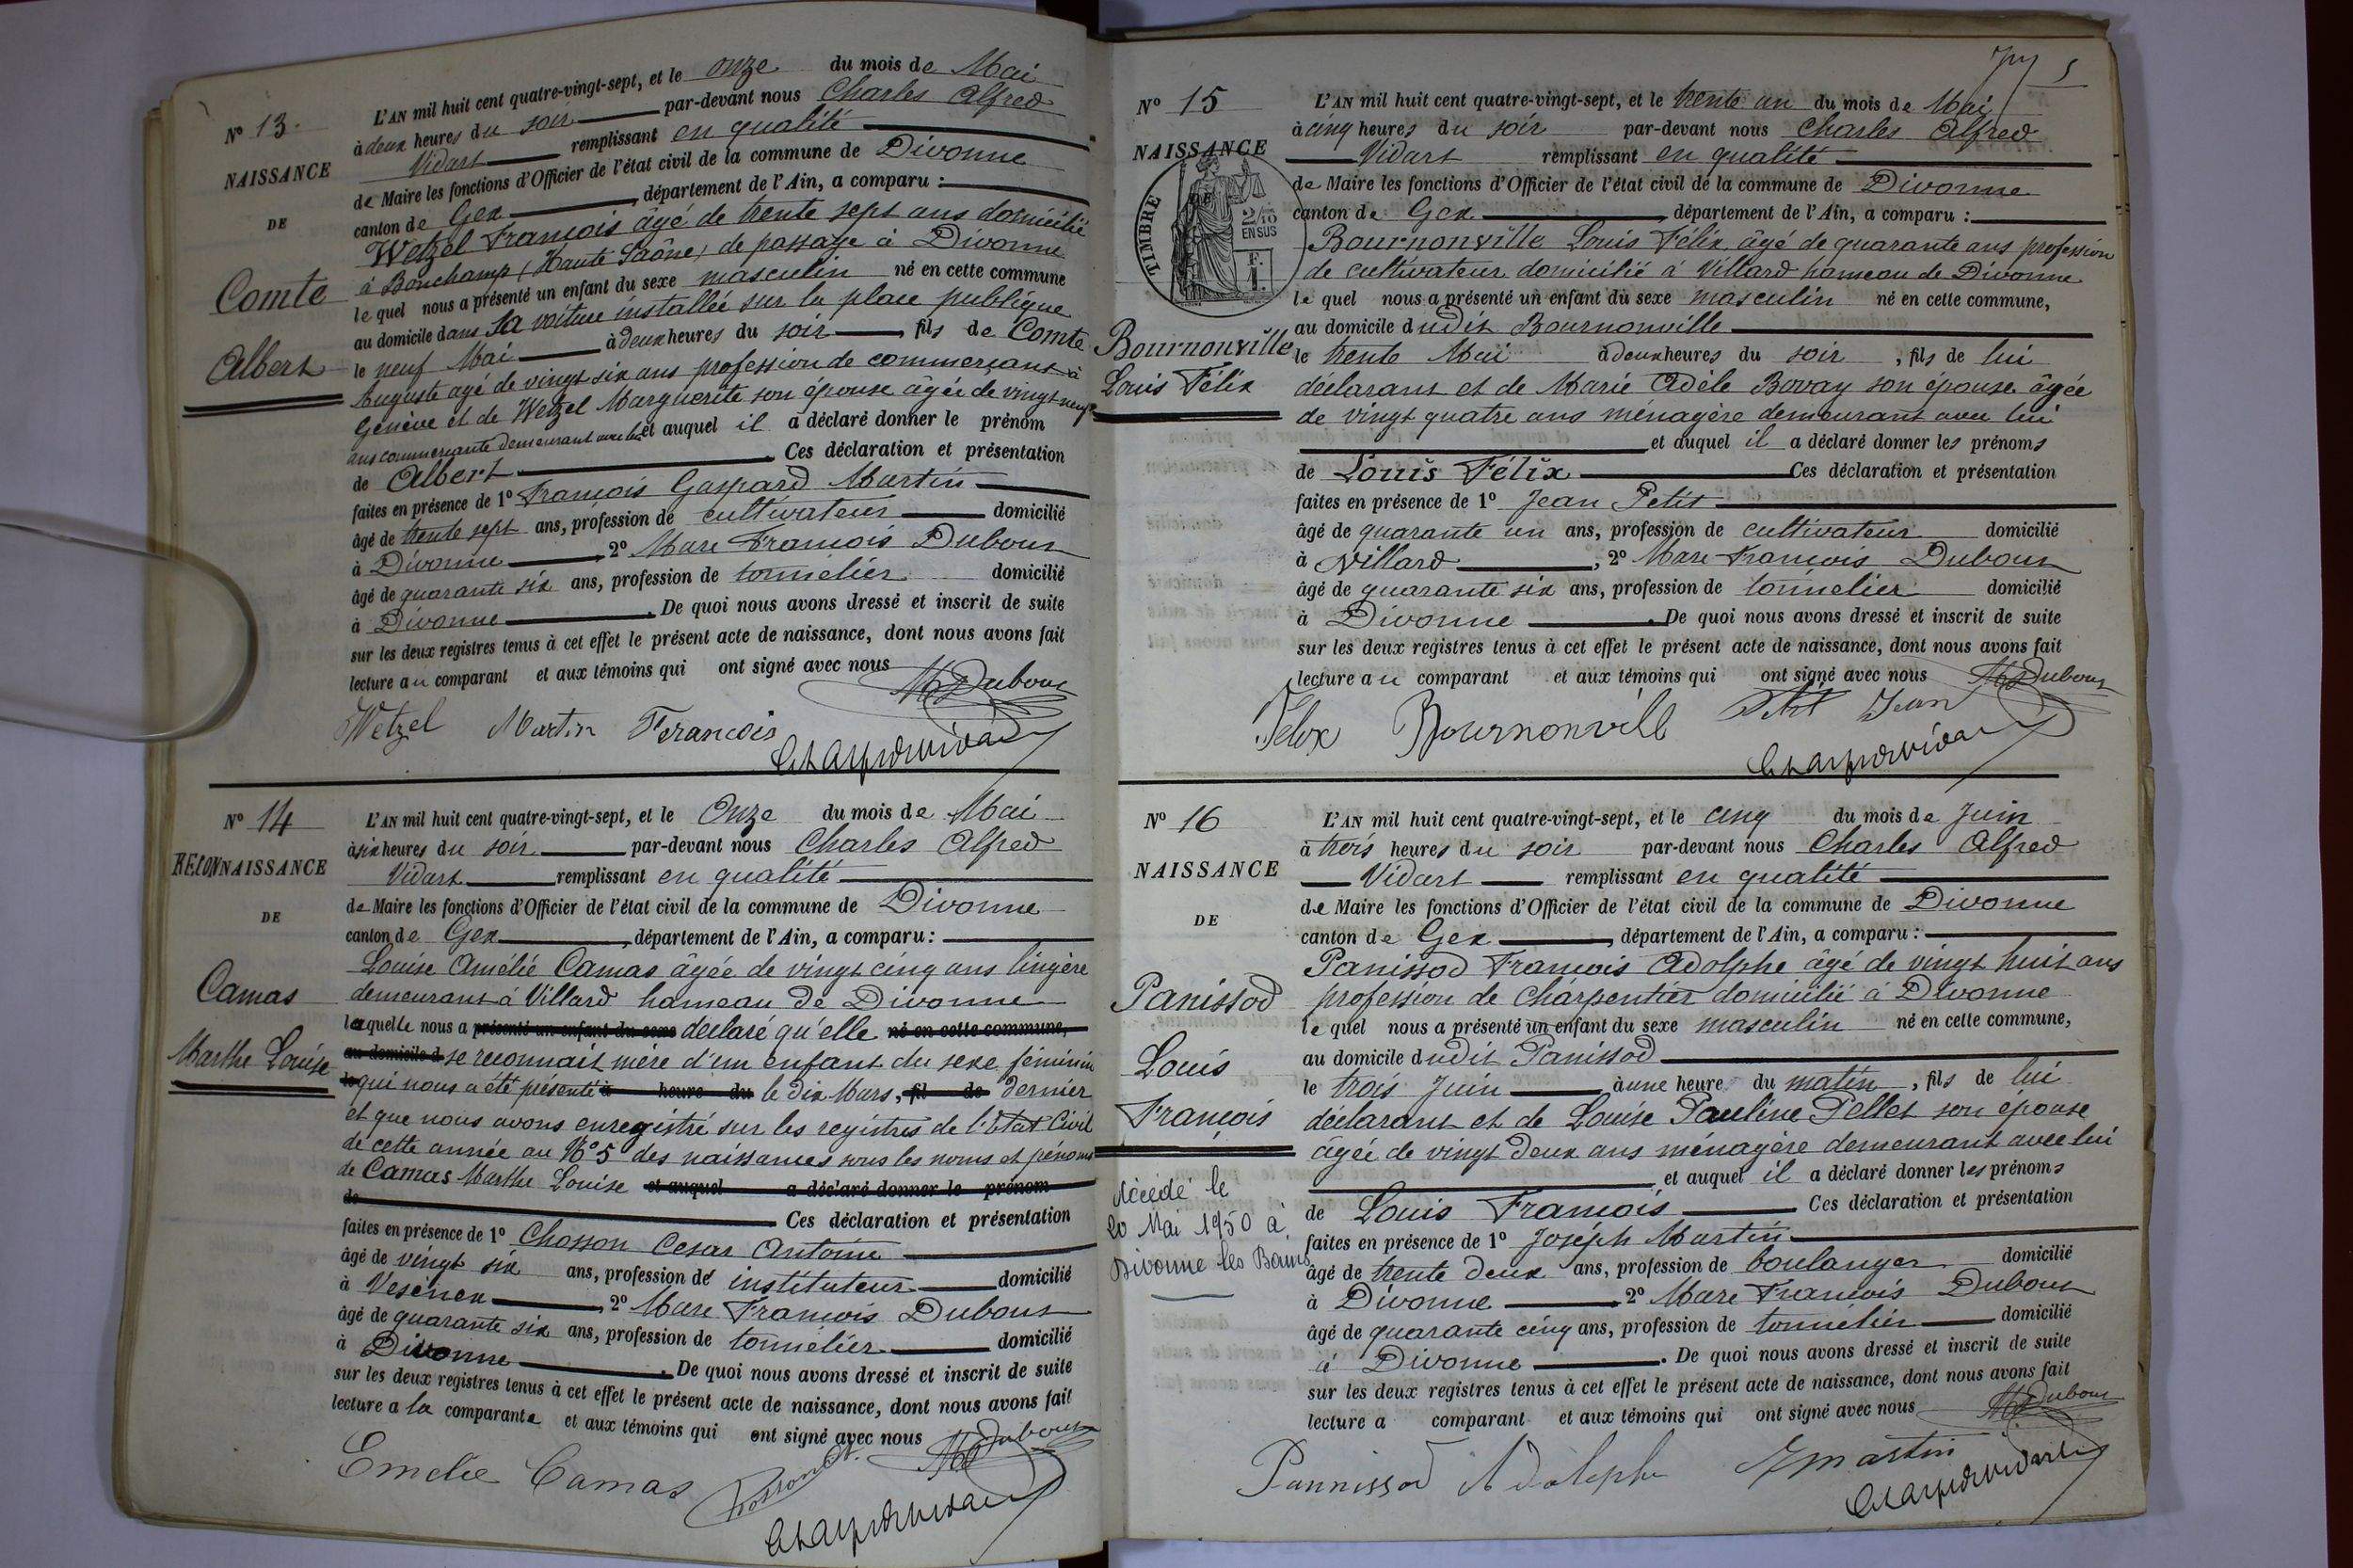 N° 13.
NAISSANCE
DE
Comte
Albert
L'AN mil huit cent quatre-vingt-sept, et le onze du mois de Mai
à deux heures du soir par-devant nous Charles Alfred
Vidart remplissant en qualité
de Maire les fonctions d'Officier de l'état civil de la commune de Divonne
canton de Gex, département de l'Ain, a comparu :
Wetzel François âgé de trente sept ans domicilié
à Bouchamp (Haute Saône) de passage à Divonne
le quel nous a présenté un enfant du sexe masculin né en cette commune
au domicile dans sa voiture installée sur la place publique
le neuf Mai à deux heures du soir fils de Comte
Auguste agé de vingt six ans profession de commerçant à
Genève et de Wetzel Marguerite son épouse âgée de vingt neuf
ans commerçante demeurant avec lui et auquel il a déclaré donner le prénom
de Albert. Ces déclaration et présentation
faites en présence de 1° François Gaspard Martin
âgé de trente sept ans, profession de cultivateur domicilié
à Divonne, 2° Marc François Dubout
âgé de quarante six ans, profession de tonnelier domicilié
à Divonne. De quoi nous avons dressé et inscrit de suite
sur les deux registres tenus à cet effet le présent acte de naissance, dont nous avons fait
lecture au comparant et aux témoins qui ont signé avec nous
MDubout
Wetzel Martin Francois
Ch Alfred Vidart
N° 14
RECONNAISSANCE
DE
Camas
Marthe Louise
L'AN mil huit cent quatre-vingt-sept, et le Onze du mois de Mai
à six heures du soir par-devant nous Charles Alfred
Vidart remplissant en qualité
de Maire les fonctions d'Officier de l'état civil de la commune de Divonne
canton de Gex, département de l'Ain, a comparu :
Louise Amélie Camas âgée de vingt cinq ans lingère
demeurant à Villard hameau de Divonne
laquelle nous a présenté un enfant du sexe déclaré qu'elle né en cette commune,
au domicile d se reconnait mère d'un enfant du sexe féminin
le qui nous a été présenté à heure du le dix Mars, fil de dernier
et que nous avons enregistré sur les registres de l'Etat Civil
de cette année au N° 5 des naissances sous les noms et prénoms
de Camas Marthe Louise et auquel a déclaré donner le prénom
de
Ces déclaration et présentation
faites en présence de 1° Chosson Cesar Antoine
âgé de vingt six ans, profession de instituteur domicilié
à Vesenex, 2° Marc François Dubout
âgé de quarante six ans, profession de tonnelier domicilié
à Divonne. De quoi nous avons dressé et inscrit de suite
sur les deux registres tenus à cet effet le présent acte de naissance, dont nous avons fait
lecture a la comparante et aux témoins qui ont signé avec nous
MDubout
Emelie Camas Chosson
Ch Alfred Vidart
5
N° 15
NAISSANCE
TIMBRE
2/10
EN SUS
F.
1.
Bournonville
Louis Félix
L'AN mil huit cent quatre-vingt-sept, et le trente un du mois de Mai
à cinq heures du soir par-devant nous Charles Alfred
Vidart remplissant en qualité
de Maire les fonctions d'Officier de l'état civil de la commune de Divonne
canton de Gex, département de l'Ain, a comparu :
Bournonville Louis Félix, âgé de quarante ans profession
de cultivateur domicilié à Villard hameau de Divonne
le quel nous a présenté un enfant du sexe masculin né en cette commune,
au domicile dudit Bournonville
le trente Mai à deux heures du soir, fils de lui
déclarant et de Marie Adèle Bovay son épouse âgée
de vingt quatre ans ménagère demeurant avec lui
et auquel il a déclaré donner les prénoms
de Louis Félix Ces déclaration et présentation
faites en présence de 1° Jean Petit
âgé de quarante un ans, profession de cultivateur domicilié
à Villard, 2° Marc François Dubout
âgé de quarante six ans, profession de tonnelier domicilié
à Divonne. De quoi nous avons dressé et inscrit de suite
sur les deux registres tenus à cet effet le présent acte de naissance, dont nous avons fait
lecture au comparant et aux témoins qui ont signé avec nous
MDubout
Felix Bournonvill Petit Jean
Ch Alfred Vidart
N° 16
NAISSANCE
DE
Panissod
Louis
François
Décédé le
20 Mai 1950 à
Divonne les Bains
L'AN mil huit cent quatre-vingt-sept, et le cinq du mois de Juin
à trois heures du soir par-devant nous Charles Alfred
Vidart remplissant en qualité
de Maire les fonctions d'Officier de l'état civil de la commune de Divonne
canton de Gex, département de l'Ain, a comparu :
Panissod François Adolphe âgé de vingt huit ans
profession de charpentier domicilié à Divonne
le quel nous a présenté un enfant du sexe masculin né en cette commune,
au domicile dudit Panissod
le trois Juin à une heure du matin, fils de lui
déclarant et de Louise Pauline Pellet son épouse
âgée de vingt deux ans ménagère demeurant avec lui
et auquel il a déclaré donner les prénoms
de Louis François Ces déclaration et présentation
faites en présence de 1° Joseph Martin
âgé de trente deux ans, profession de boulanger domicilié
à Divonne, 2° Marc François Dubout
âgé de quarante cinq ans, profession de tonnelier domicilié
à Divonne. De quoi nous avons dressé et inscrit de suite
sur les deux registres tenus à cet effet le présent acte de naissance, dont nous avons fait
lecture a comparant et aux témoins qui ont signé avec nous
MDubout
Pannissod Adolphe J martin
Ch Alfred Vidart